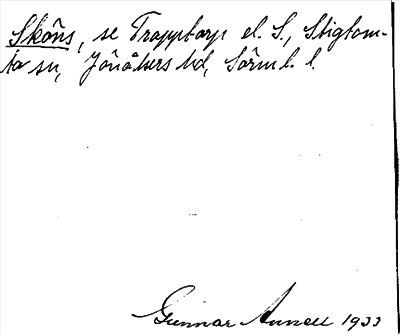 Sköns, se Trapptorp el. S., Stigtom-
ta sn, Jönåkers hd, Sörml. l.
Gunnar Annell 1933